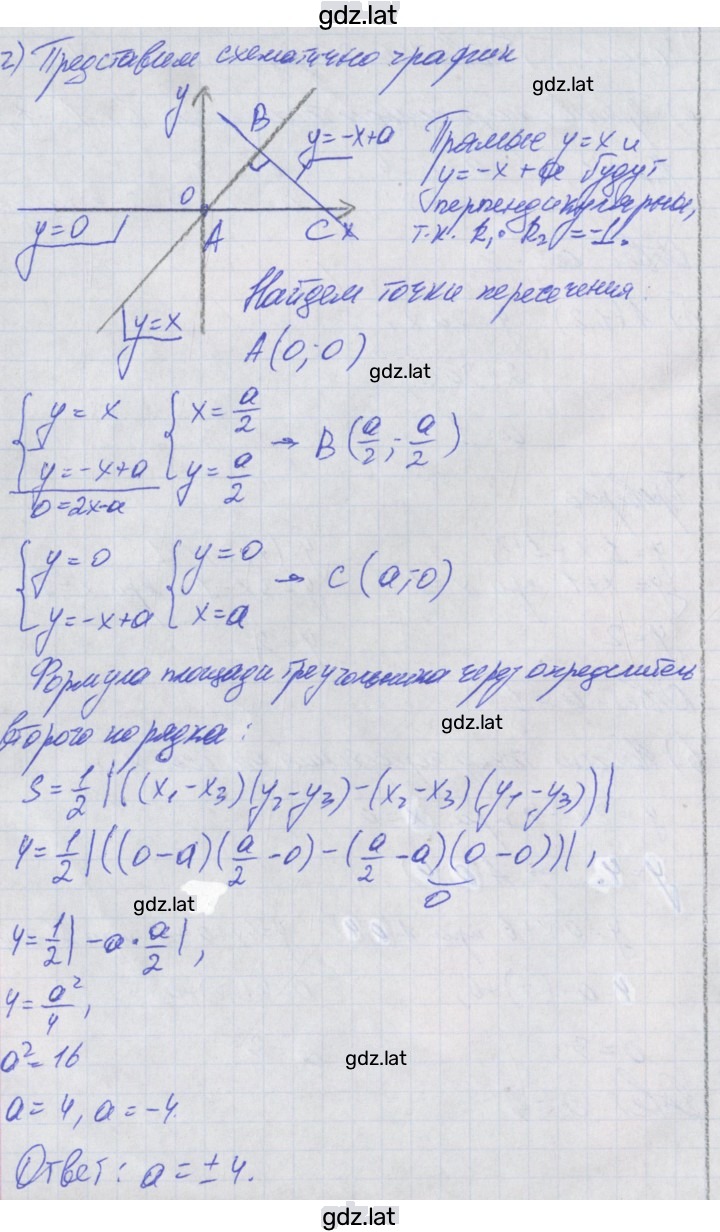 gdz.lat
2) Представим схематично график
gdz.lat
y
B
y=-x+a
0
A
C
x
y=0
y=x
Прямые y=x и
y=-x+a будут
перпендикулярны,
т.к. k₁·k₂=-1.
Найдем точки пересечения:
A(0;0)
gdz.lat
{y=x {x=a/2
{y=-x+a {y=a/2 → B(a/2; a/2)
0=2x-a
{y=0 {y=0
{y=-x+a {x=a → C(a;0)
Формула площади треугольника через определитель
gdz.lat
второго порядка:
S=1/2|((x₁-x₃)(y₂-y₃)-(x₂-x₃)(y₁-y₃))|
4=1/2|((0-a)(a/2-0)-(a/2-a)(0-0))|,
0
gdz.lat
4=1/2|-a·a/2|,
4=a²/4,
a²=16
gdz.lat
a=4, a=-4
Ответ: a=±4.
gdz.lat